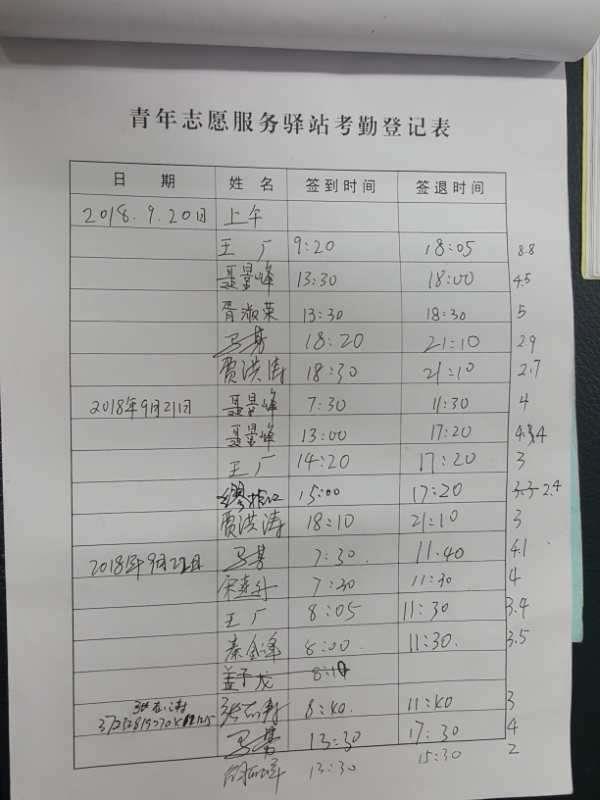 青年志愿服务驿站考勤登记表
日 期 姓 名 签到时间 签退时间
2018.9.20日 上午
王广 9:20 18:05 8.8
聂景峰 13:30 18:00 4.5
胥淑荣 13:30 18:30 5
18:20 21:10 2.9
贾洪涛 18:30 21:10 2.7
2018年9月21日 聂景峰 7:30 11:30 4
聂景峰 13:00 17:20 4.34
王广 14:20 17:20 3
15:00 17:20 3.3 2.4
贾洪涛 18:10 21:10 3
2018年9月22日 7:30 11:40 4.1
7:30 11:30 4
王广 8:05 11:30 3.4
秦金峰 8:00 11:30 3.5
孟子龙 8:10
8:40 11:40 3
13:30 17:30 4
13:30 15:30 2